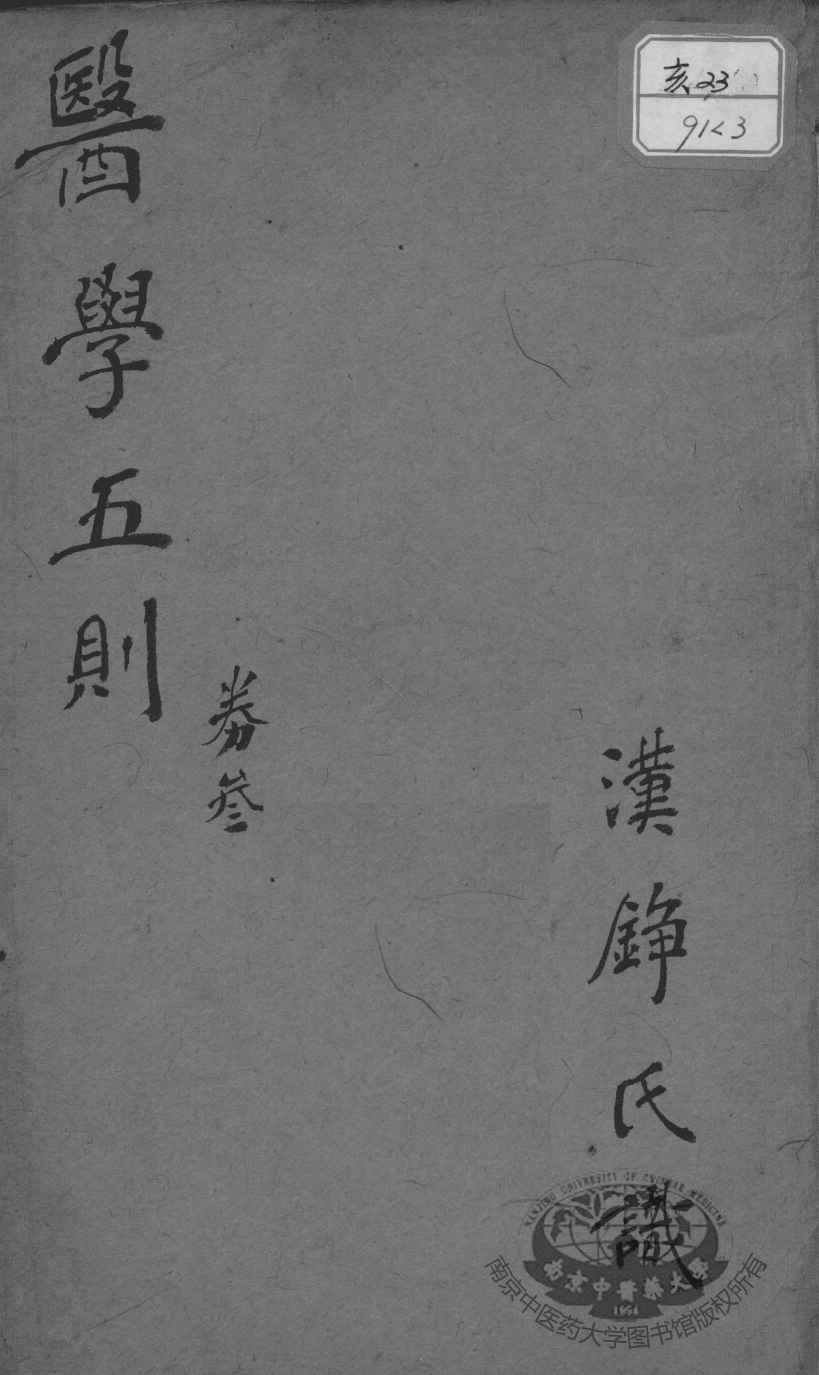 亥23
91<3
漢錚氏識
醫學五則
券叄
NANJING UNIVERSITY OF CHINESE MEDICINE
南京中醫藥大學
1954
南京中医药大学图书馆版权所有